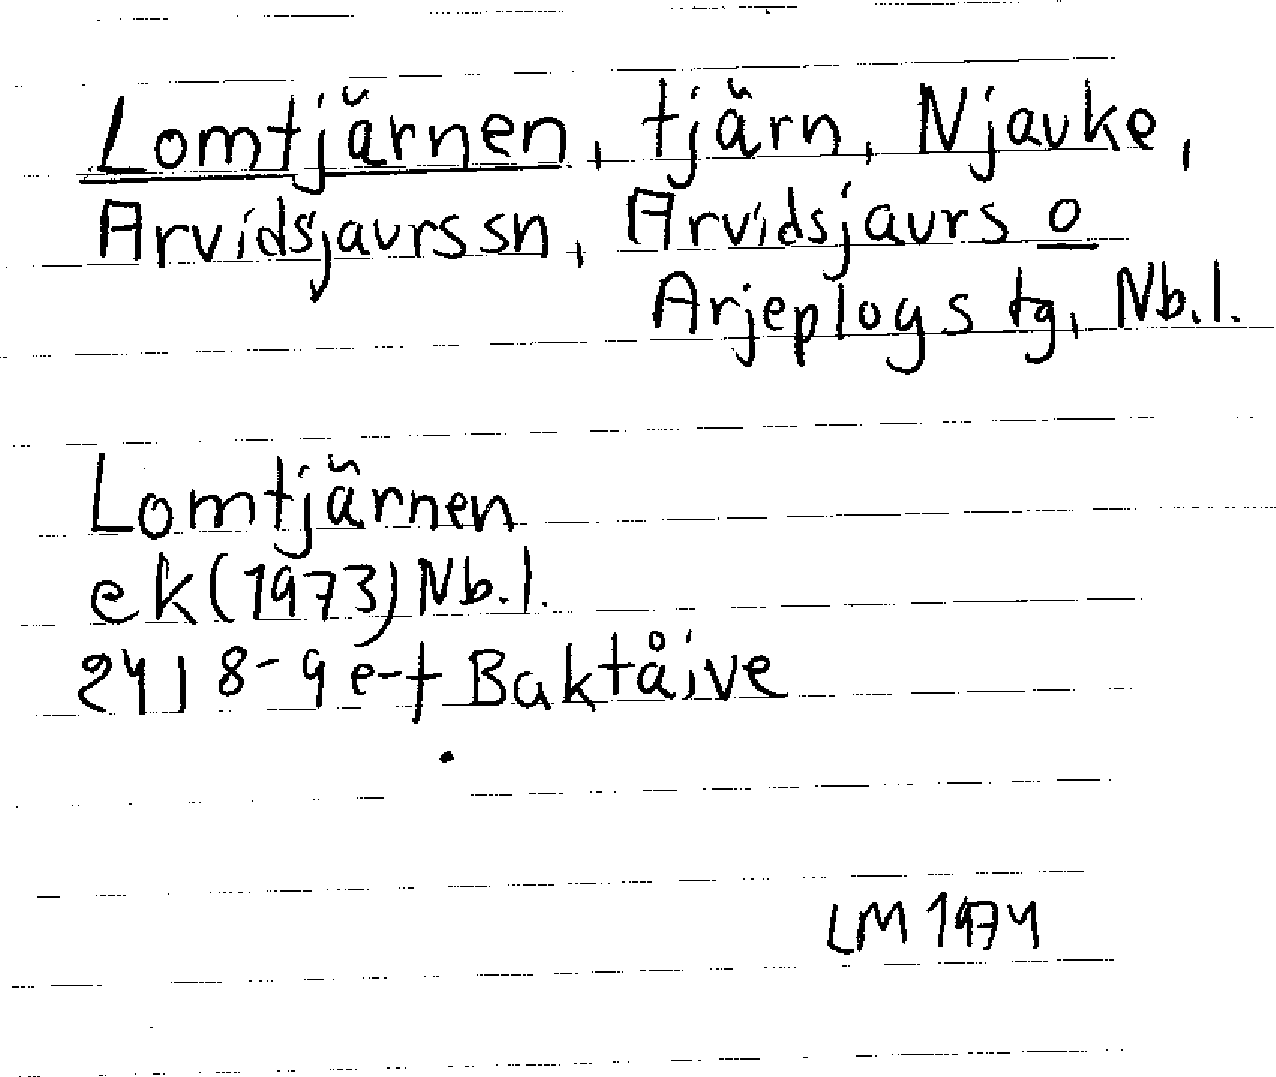 Lomtjärnen, tjärn, Njavke,
Arvidsjaurs sn, Arvidsjaurs o
Arjeplogs tg, Nb.l.
Lomtjärnen
ek (1973) Nb.l.
24J 8-9 e-f Baktåive
LM 1974